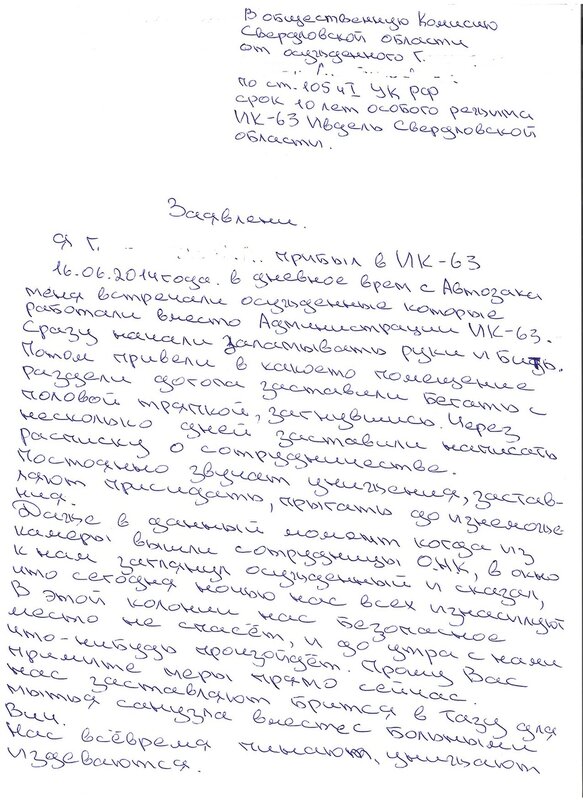 В общественную Комисию
Свердловской области
от осуждённого Г.
по ст. 105 ч I УК РФ
срок 10 лет особого режима
ИК-63 Ивдель Свердловской
области.
Заявлени.
Я Г. прибыл в ИК-63
16.06.2014 года. в дневное врем с Автозаки
меня встречали осужденные которые
работали вместо Администрации ИК-63.
Сразу начали заламывать руки и бить.
Потом привели в какоето помещение
раздели догола заставили бегать с
половой тряпкой, загнувшись. Через
несколько дней заставили написать
расписку о сотрудничестве.
Постоянно звучат унижения, застав-
ляют приседать, прыгать до изнеможе
ния.
Даже в данный момент когда из
камеры вышли сотрудницы ОНК, в окно
к нам заглянул осужденный и сказал,
что сегодня ночью нас всех изнасилуют
В этой колонии нас безопасное
место не спасёт, и до утра с нами
что-нибудь произойдёт. Прошу Вас
примите меры прямо сейчас.
нас заставляют бритса в тазу для
мытья санузла вместес больными
Вич.
Нас всёвремя пинают, унижают
издеваются.